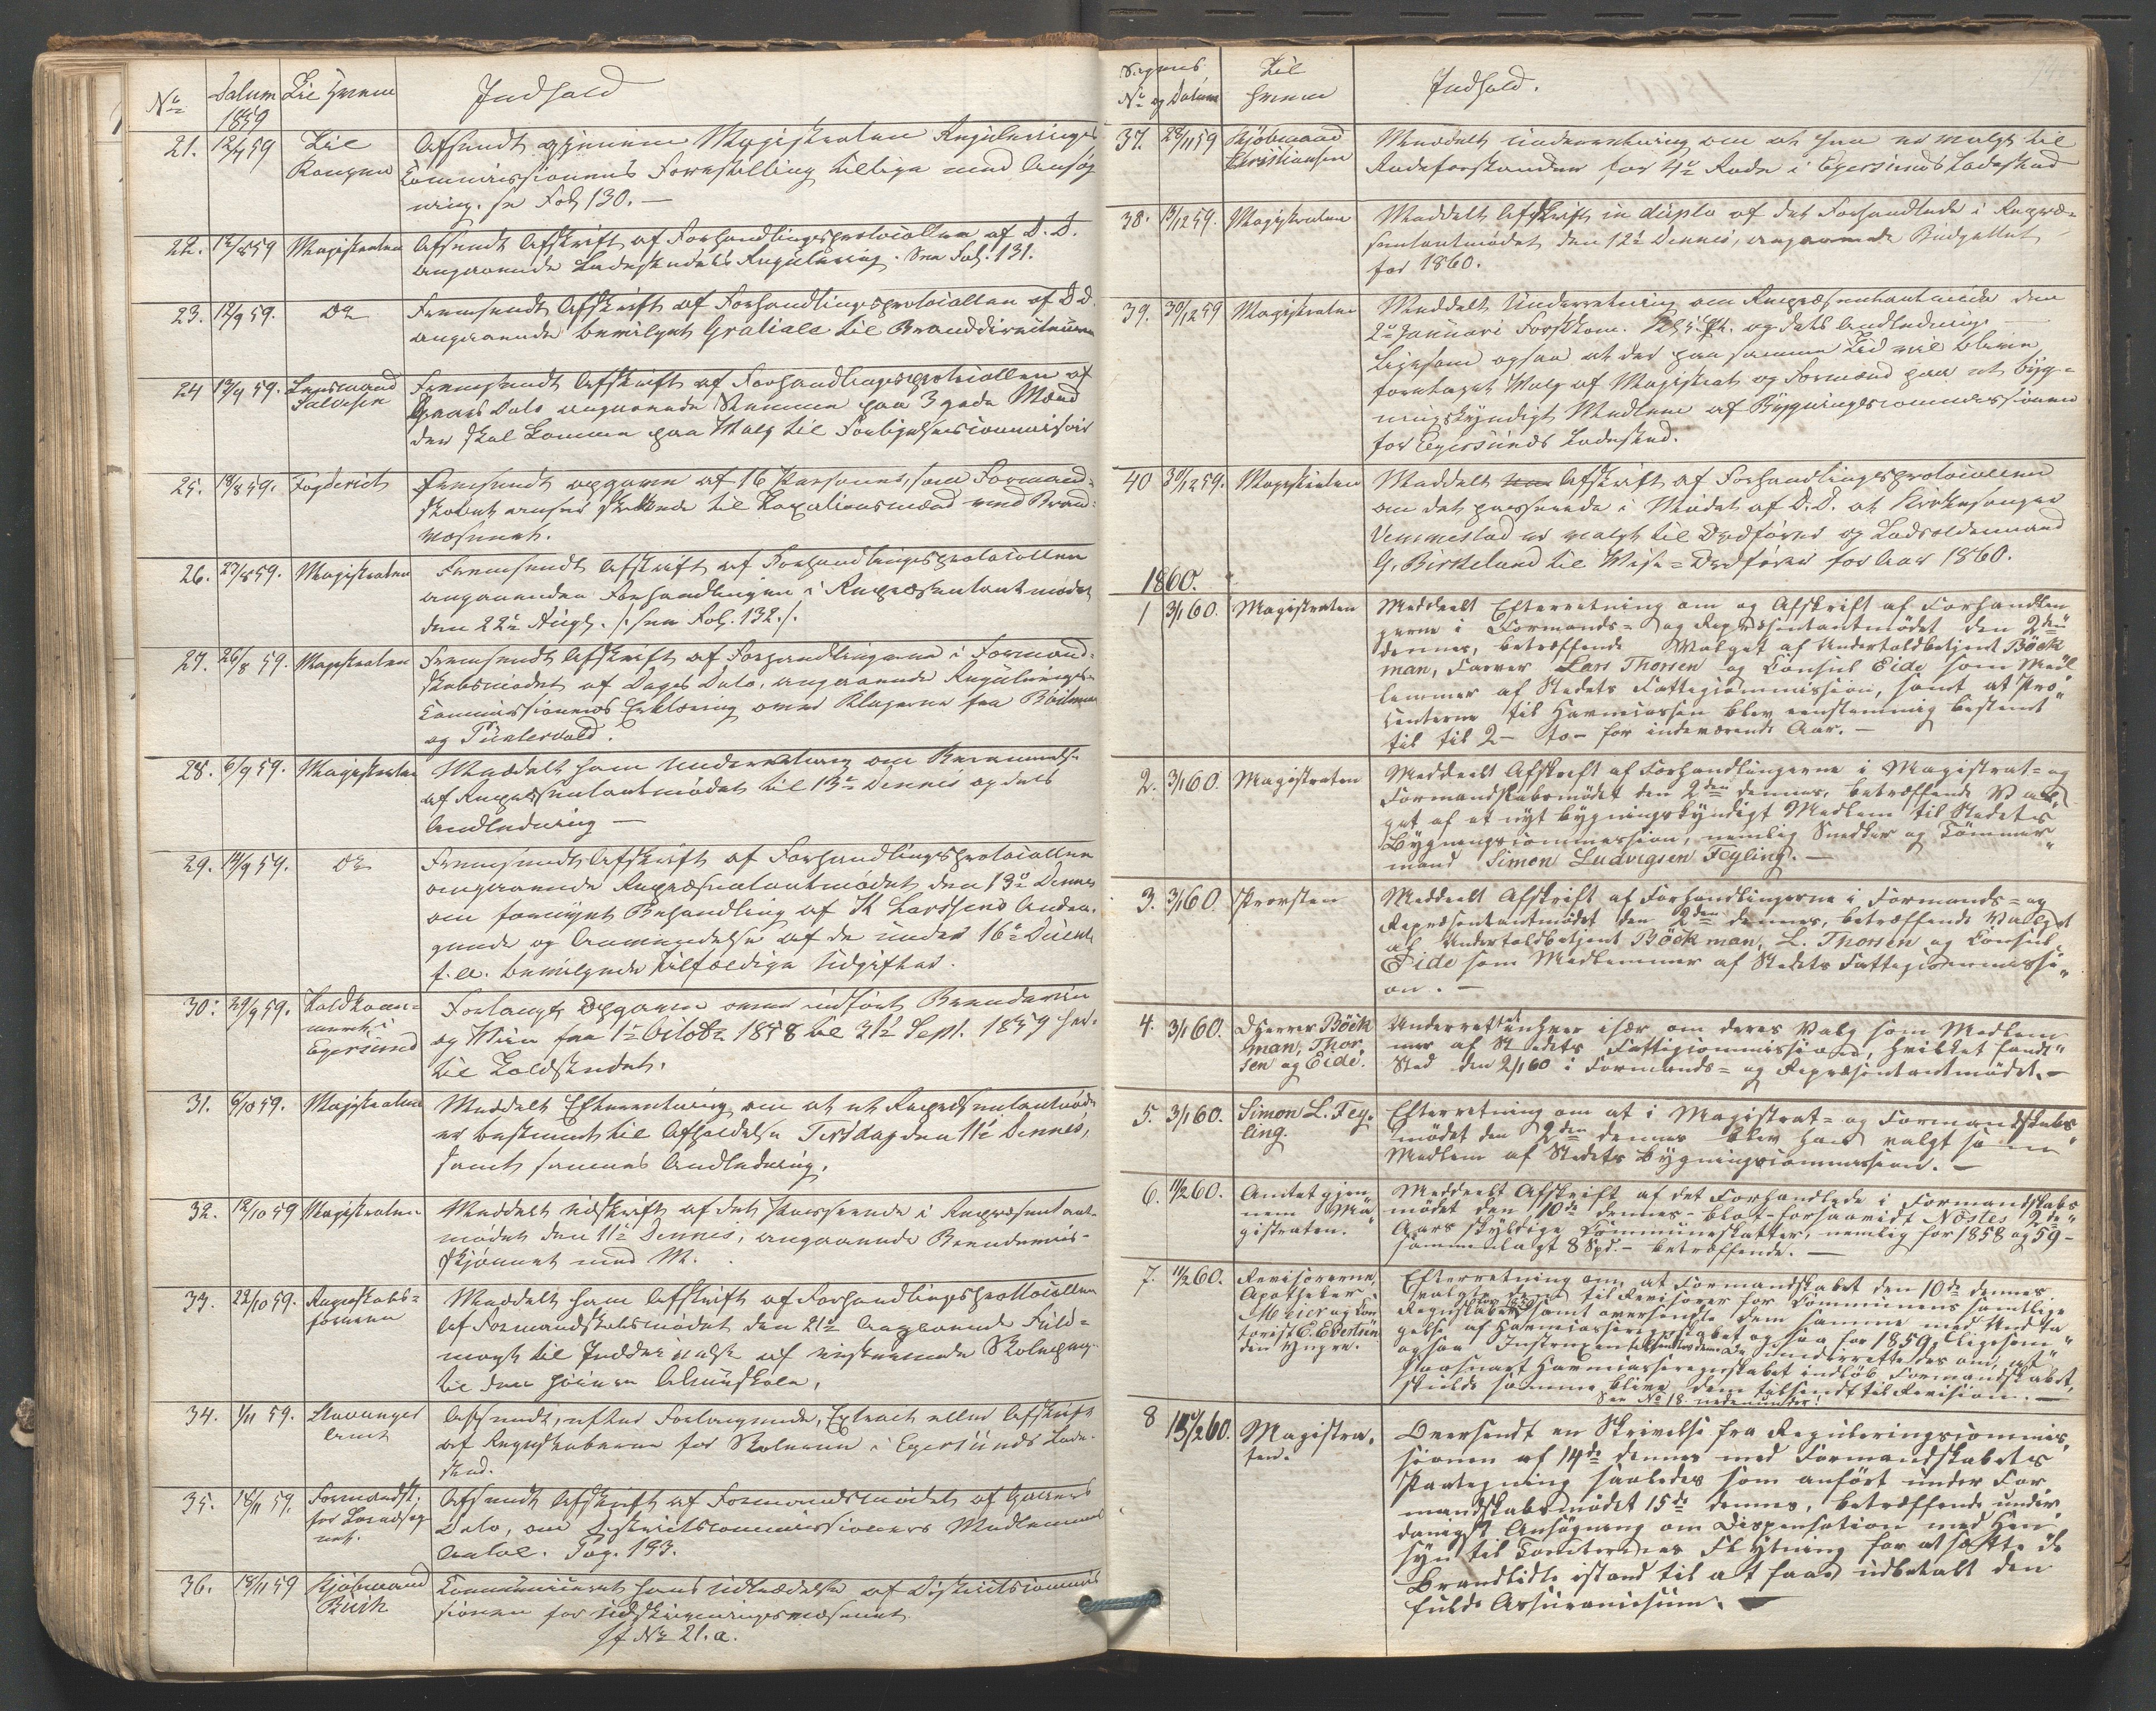 No Datum 1859 Til Hvem Indhold
21. 12/7 59 Til Kongen Afsendt gjennem Magistraten Regulerings
Commissionens Forestilling tillige med Ansøg
ning. se Fol 130. —
22. 12/8 59 Magistraten Afsendt Afskrift af Forhandlingsprotocollen af D. D.
angaaende Ladestedets Regulering. See Fol. 131.
23. 12/9 59. Do Fremsendt Afskrift af Forhandlingsprotocollen af D. D.
angaaende bevilget Gratiale til Branddirecteuren
24 13/9 59. Lensmand Salvesen Fremsendt Afskrift af Forhandlingsprotocollen af
Gaars Dato angaaende Stemmer paa 3 gode Mænd
der skal komme paa Valg til Forligelsescommissair
25. 18/8 59. Fogderiet Fremsendt opgave af 16 Personer, som Formand-
skabet anseer skikkede til Taxationsmænd ved Brand-
væsenet.
26. 23/8 59. Magistraten Fremsendt Afskrift af Forhandlingsprotocollen
angaaende Forhandlingen i Repræsentantmødet
den 22de Augt. /: see Fol. 132 :/
27. 26/8 59. Magistraten Fremsendt Afskrift af Forhandlingerne i Formand-
skabsmødet af Dags Dato, angaaende Regulerings-
Commissionens Erklæring over Klagerne fra Böckman
og Puntervold.
28. 6/9 59. Magistraten Meddelt ham Underretning om Berammelse
af Repræsentantmødet til 13de Dennes og dets
Anledning —
29. 14/9 59. Do Fremsendt Afskrift af Forhandlingsprotocollen
angaaende Repræsentantmødet den 13de Dennes
om fornyet Behandling af K Larssens Andra-
gende og Anvendelse af de under 16de
f. A. bevilgede tilfældige Udgifter.
30. 29/9 59. Toldkam-
meret i
Egersund Forlangt Opgave over indført Brændeviin
og Viin fra 1ste Octobr. 1858 til 31te Sept. 1859 her-
til Toldstedet.
31. 6/10 59. Magistraten Meddelt Efterretning om at et Repræsentantmøde
er bestemt til Afholdelse Tirsdag den 11te Dennes,
samt sammes Anledning.
32. 12/10 59 Magistraten Meddelt Udskrift af det passerede i Repræsentant-
mødet den 11te Dennes, angaaende Brændeviins-
skjønnet med M.
33. 22/10 59. Regnskabs-
førerne Meddelt ham Afskrift af Forhandlingsprottocollen
af Formandskabsmødet den 21de Angaaende Fuld-
magt til Inddrivelse af resterende Skolepenge
til den høiere Almueskole.
34. 1/11 59. Stavanger Amt Afsendt, efter Forlangende, Extract eller Afskrift
af Regnskaberne for Skolerne i Egersunds Lade-
sted.
35. 18/11 59. Formandsk.
for Landsog
net. Afsendt Afskrift af Formandsmødet af Gaars
Dato, om Districtscommissionens Medlemmers
Antal. Pag. 193.
36. 18/11 59 Kjøbmand
Büch Communiceret hans Udtrædelse af Districtscommis
sionen for Udskrivningsvæsenet
cf No 21. a.
No og Datum Til Hvem Indhold.
37. 28/11 59 Kjøbmand
Christiansen Meddelt Underretning om at han er valgt til
Rodeforstander for 4de Rode i Egersunds Ladested
38. 13/12 59. Magistraten Meddelt Afskrift in duplo af det Forhandlede i Repræ-
sentantmødet den 12te Dennes, angaaende Budgettet
for 1860.
39. 30/12 59 Magistraten Meddelt Underretning om Repræsentantmøde den
2de Januari Førstkom. Kl og dets Anledning —
Ligesom ogsaa at der paa samme Tid vil blive
foretaget Valg af Magistrat og Formænd paa et byg-
ningskyndigt Medlem af Bygningscommissionen
for Egersunds Ladested.
40 30/12 59. Magistraten Meddelt Afskrift af Forhandlingsprotocollen
om det passerede i Mødet af D. D. at Kirkesanger
Vemmestad er valgt til Ordfører og Ladsoldermand
G. Birkeland til Vise-Ordfører for Aar 1860.
1860.
1 3/1 60. Magistraten Meddeelt Efterretning om og Afskrift af Forhandlin
gerne i Formands- og Repræsentantmødet den 2den
dennes, betræffende Valget af Undertoldbetjent Böck
man, Farver Lars Thorsen og Consul Eide som Med
lemmer af Stedets Fattigcommission, samt at Pro
centerne til Havnecassen blev eenstemmig bestemt
til til 2 – to – for indeværende Aar. —
2. 3/1 60. Magistraten Meddeelt Afskrift af Forhandlingerne i Magistrat- og
Formandskabsmødet den 2den dennes, betræffende Val
get af et nyt bygningskyndigt Medlem til Stedets
Bygningscommission, nemlig Snedker og Tømmer
mand Simon Ludvigsen Feyling. —
3. 3/1 60. Provsten Meddeelt Afskrift af Forhandlingerne i Formands- og
Repræsentantmødet den 2den dennes, betræffende Valget
af Undertoldbetjent Böckman, L. Thorsen og Consul
Eide som Medlemmer af Stedets Fattigcommissi
on. —
4. 3/1 60. DHerrer Böck
man, Thor
sen og Eide. Underrettet enhver især om deres Valg som Medlem
mer af Stedets Fattigcommission, hvilket fandt
Sted den 2/1 60 i Formands- og Repræsentantmødet. —
5. 3/1 60. Simon L. Fey-
ling. Efterretning om at i Magistrat- og Formandskabs
mødet den 2den dennes blev han valgt som
Medlem af Stedets Bygningscommission. —
6. 11/2 60. Amtet gjen
nem Ma
gistraten. Meddeelt Afskrift af det Forhandlede i Formandskabs
mødet den 10de dennes – blot forsaavidt Nöstes 2de
Aars skyldige Communeskatter, nemlig for 1858 og 59 –
sammenlagt 8 Spd. – betræffende. —
7. 11/2 60. Revisorerne,
Apotheker
Meier og Con
torist C. Evertsen
den Yngre. Efterretning om, at Formandskabet den 10de dennes
valgte dem til Revisorer for Communens samtlige
Regnskaber samt oversendte dem samme med Undta
gelse af Havnecasseregnskabet og saa for 1859, ligesom
ogsaa Instruxen underrettedes om, at
saasnart Havnecasseregnskabet indløb Formandskabet,
skulde samme blive dem tilsendt til Revision. —
See No 18 nedenunder.
8 15/2 60. Magistra-
ten. Oversendt en Skrivelse fra Reguleringscommis
sionen af 14de dennes med Formandskabets
Paategning saaledes som anført under For
mandskabsmødet 15de dennes, betræffende under
danigst Ansøgning om Dispensation med Hen
syn til Tomternes Flytning for at sætte de
Brandlidte istand til at faae udbetalt den
fulde Assurancesum. —